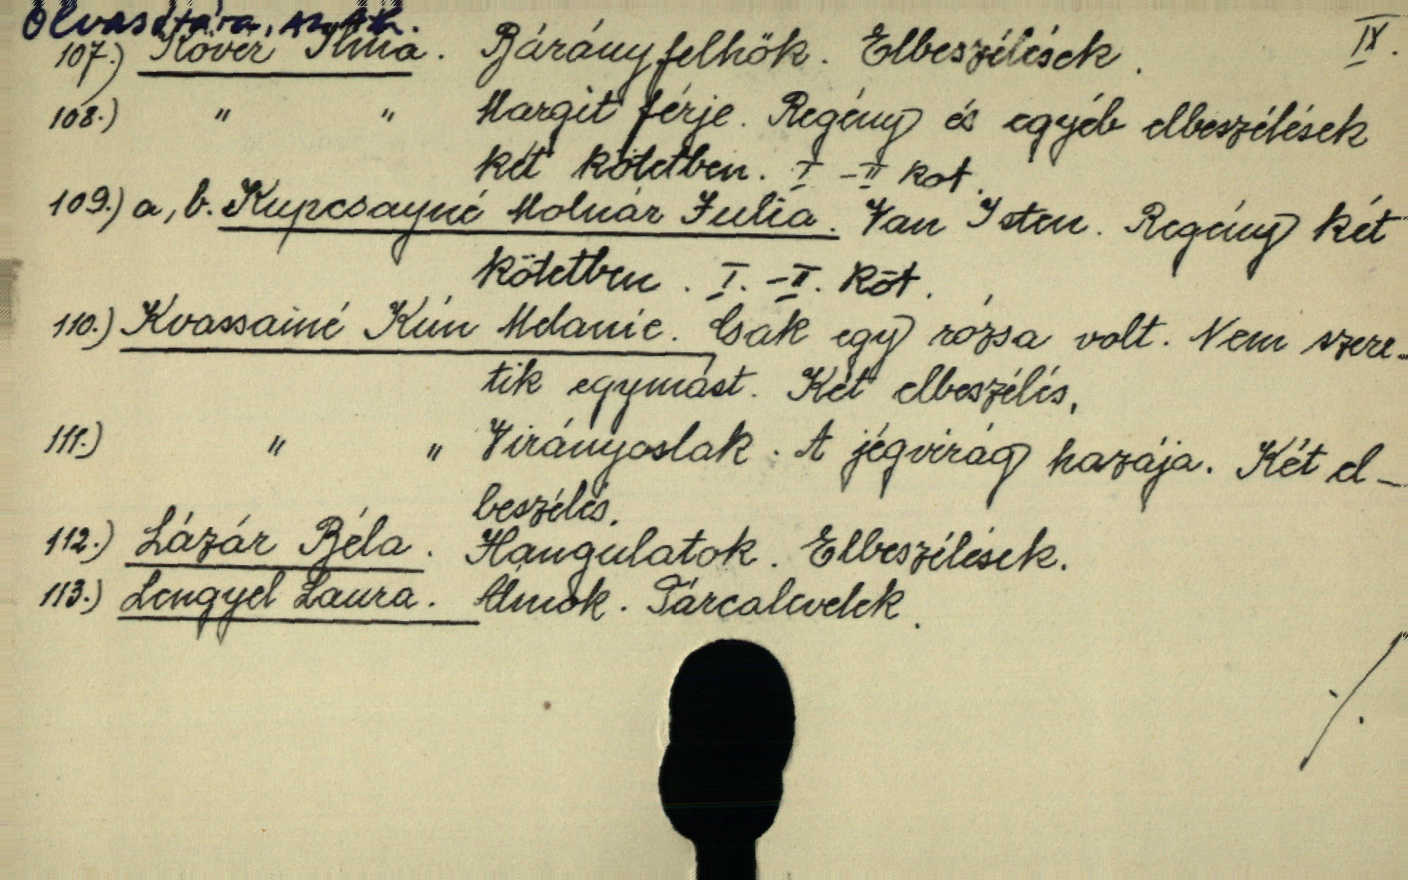 Olvasótára, Az Ath.
IX.
107.) Kövér Ilma. Bárányfelhők. Elbeszélések.
108.) " " Margit férje. Regény és egyéb elbeszélések
két kötetben. I-II kot.
109.) a, b. Kupcsayné Molnár Julia. Van Isten. Regény két
kötetben. I.-II. Köt.
110.) Kvassainé Kún Melanie. Csak egy rózsa volt. Nem szere-
tik egymást. Két elbeszélés.
111.) " " Virányoslak. A jégvirág hazája. Két el-
beszélés.
112.) Lázár Béla. Hangulatok. Elbeszélések.
113.) Lengyel Laura. Álmok. Tárcalevelek.
./.